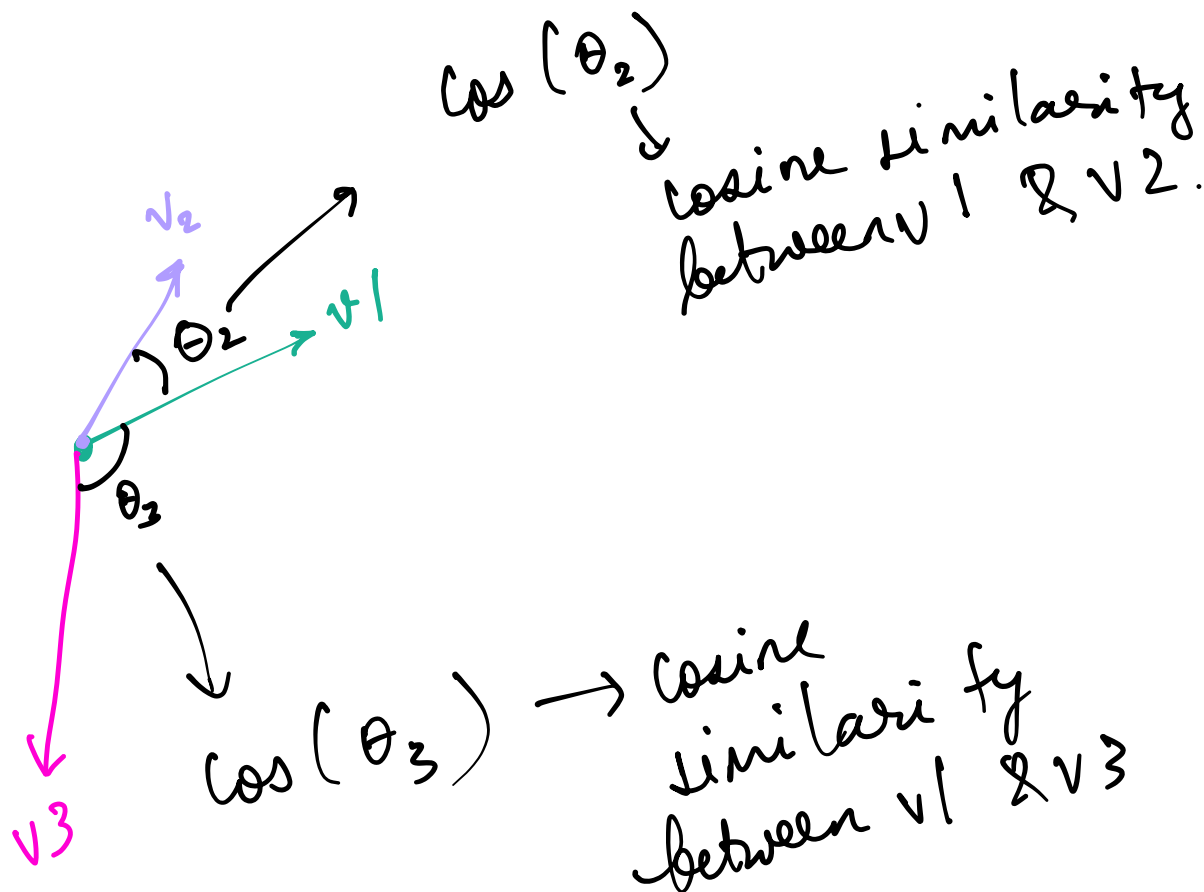 cos (θ₂)
cosine similarity
between v1 & v2.
v₂
θ2
v1
θ₃
cos (θ₃) → cosine
similarity
between v1 & v3
v3